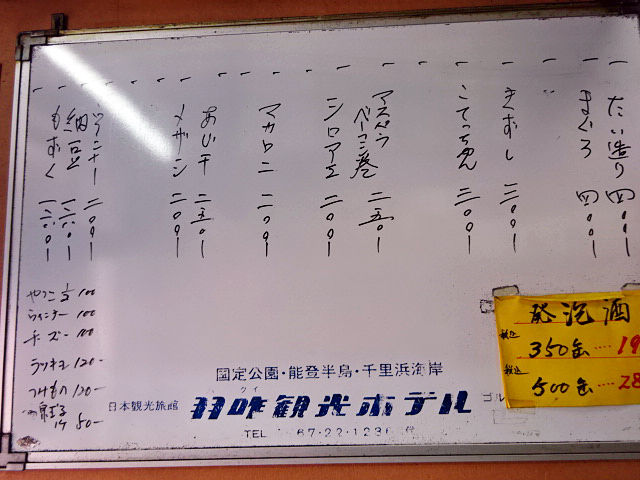 たい造り 四〇〇ー
まぐろ 四〇〇ー
きずし 三〇〇ー
こてっちゃん 三〇〇ー
アスパラベーコン巻 二五〇ー
シロアエ 二〇〇ー
マカロニ 二〇〇ー
あじ干 二五〇ー
メザシ 二〇〇ー
ウインナー 二〇〇ー
納豆 一六〇ー
もずく 一六〇ー
やっこ 1/2 100
ウィンナー 100
チーズー 100
ラッキョ 120-
つけもの 120-
50-
発泡酒
税込 350缶‥‥19
税込 500缶‥‥28
国定公園・能登半島・千里浜海岸
日本観光旅館 羽咋観光ホテル ゴル
クイ
TEL 67-22-1236